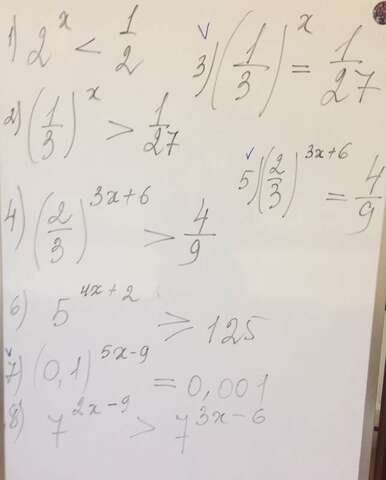 1) 2^x < 1/2
2) (1/3)^x > 1/27
√ 3) (1/3)^x = 1/27
4) (2/3)^{3x+6} > 4/9
√ 5) (2/3)^{3x+6} = 4/9
6) 5^{4x+2} ≥ 125
√ 7) (0,1)^{5x-9} = 0,001
8) 7^{2x-9} > 7^{3x-6}